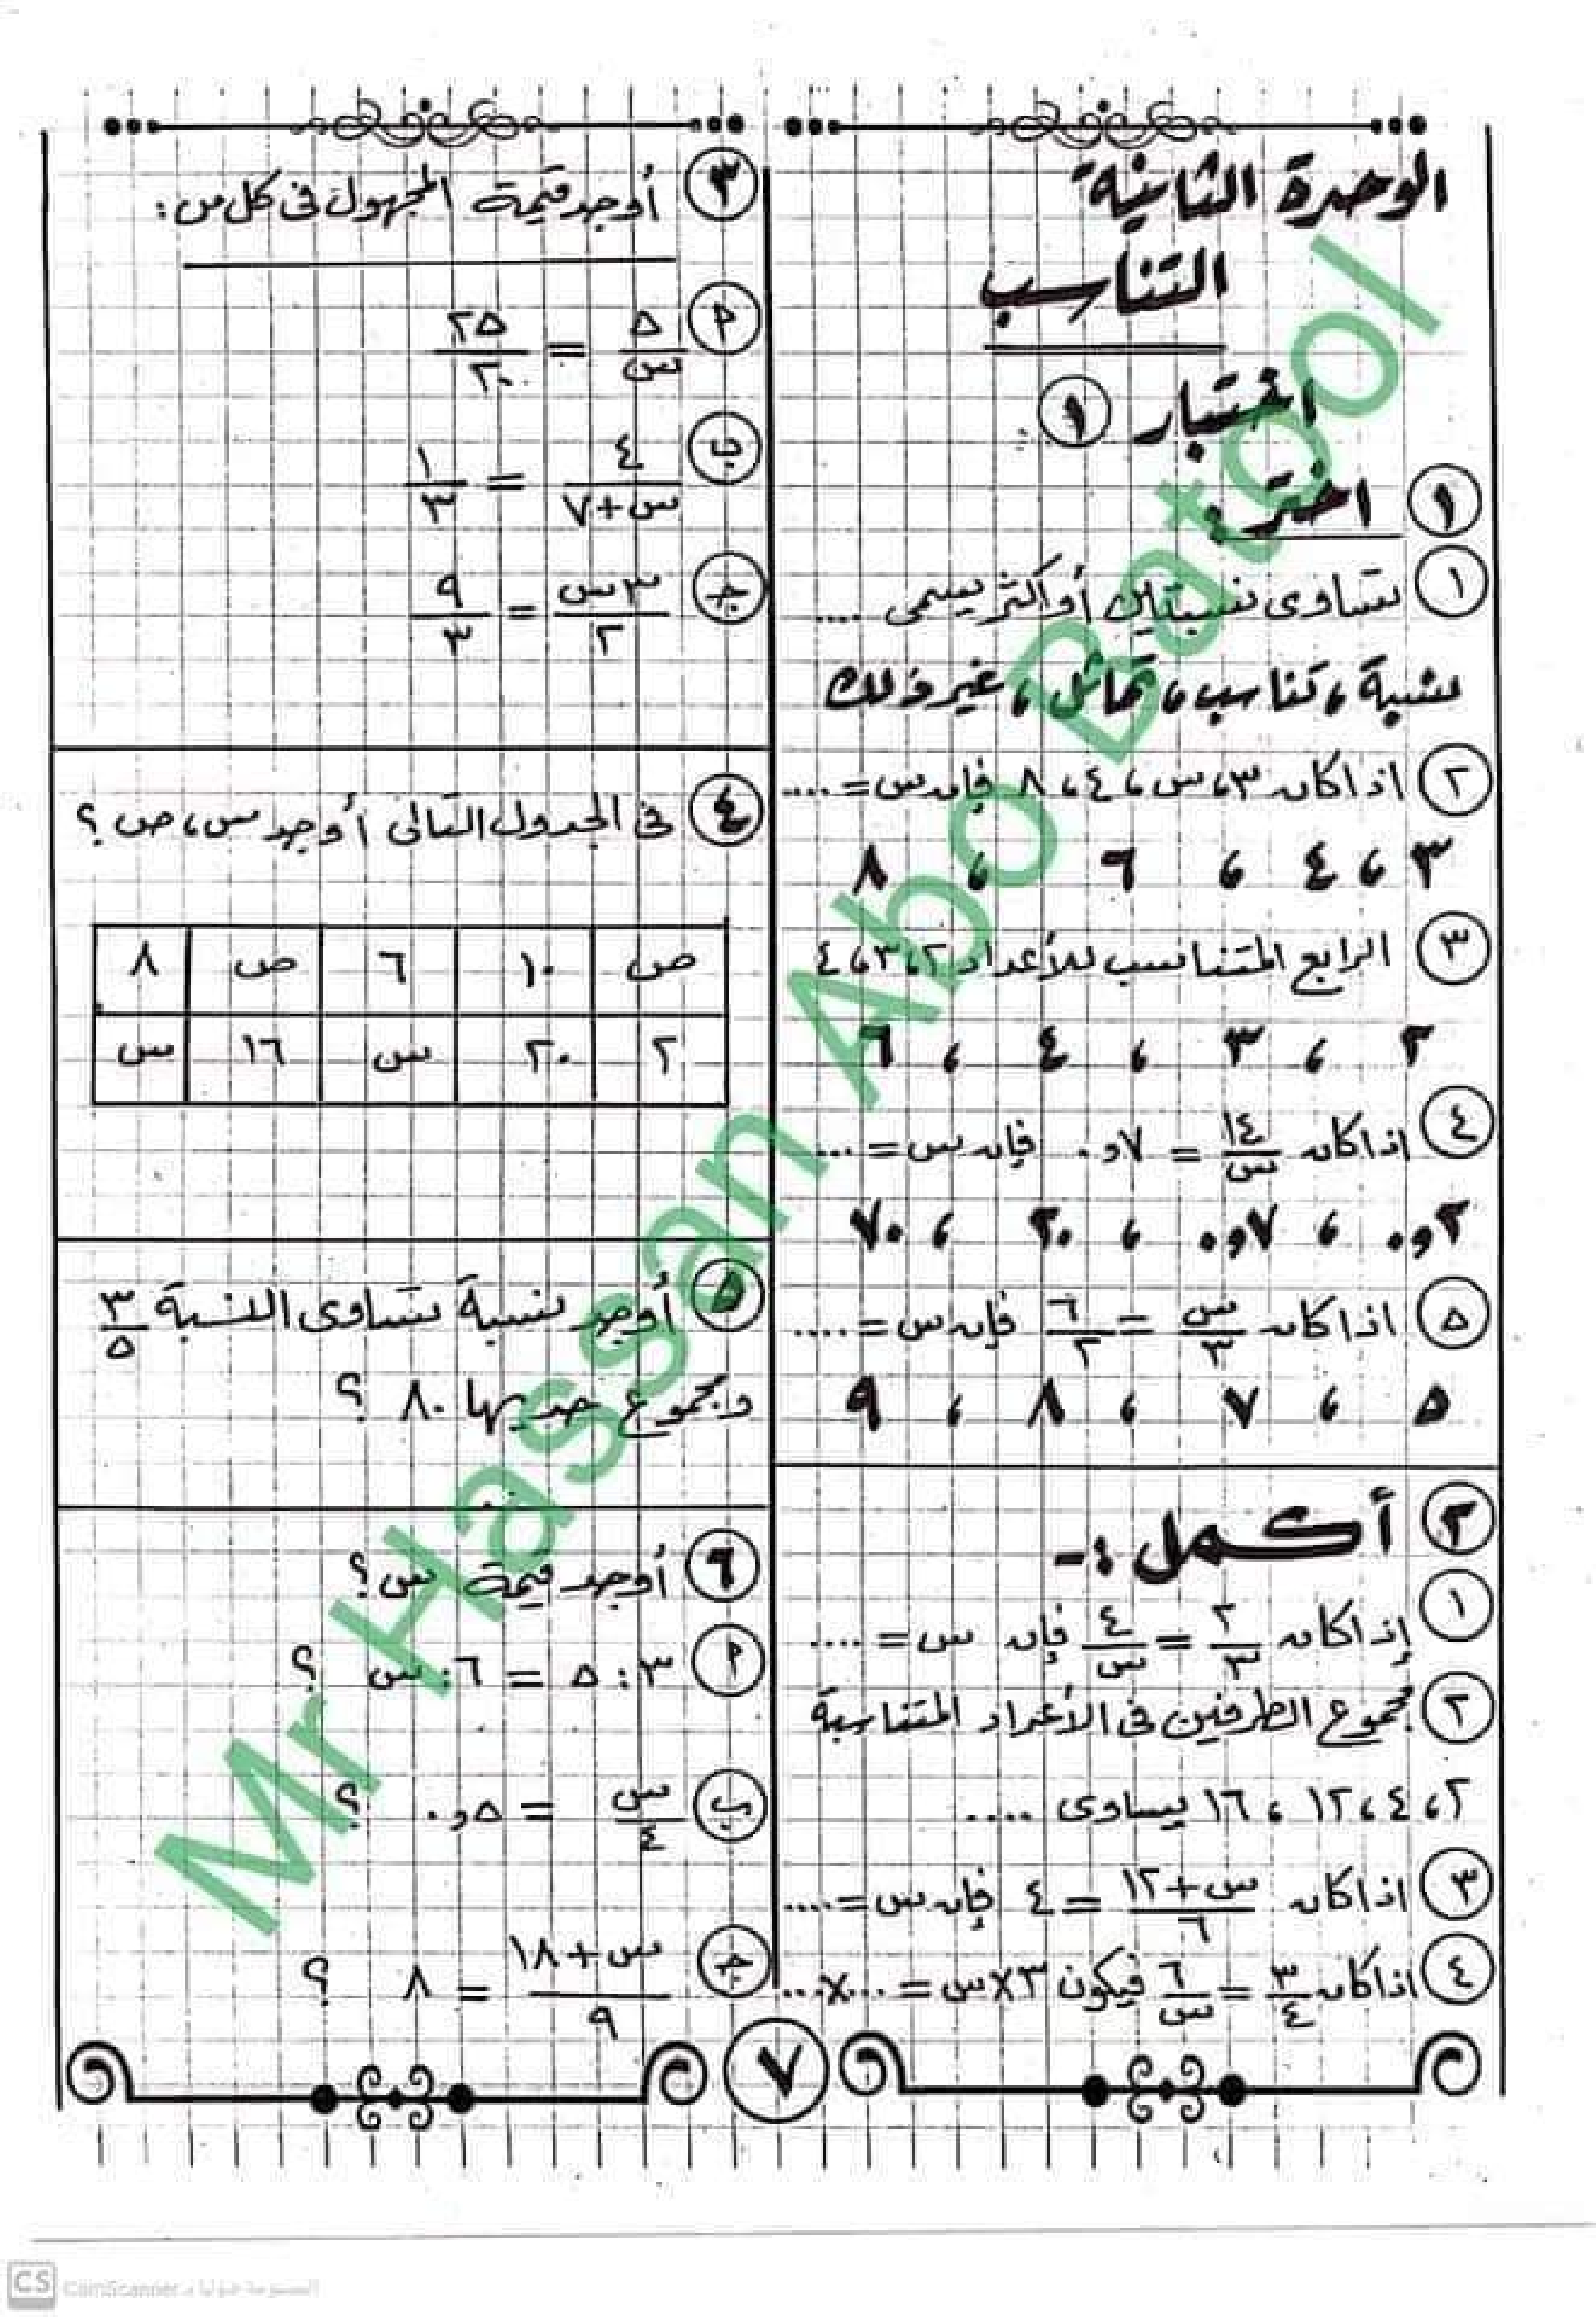 الوحدة الثانية
التناسب
اختبار ١ :
١ اختر :
١ تساوى نسبتين أو أكثر يسمى ....
نسبة ، تناسب ، تماثل ، غير ذلك
٢ اذا كان ٣ ، س ، ٤ ، ٨ فإن س = ....
٣ ، ٤ ، ٦ ، ٨
٣ الرابع المتناسب للأعداد ٢ ، ٣ ، ٤
٢ ، ٣ ، ٤ ، ٦
٤ إذا كان ١٤/س = ٠,٧ فإن س = ...
٠,٢ ، ٠,٧ ، ٢٠ ، ٧٠
٥ اذا كان س/٣ = ٦/٢ فإن س = ....
٥ ، ٧ ، ٨ ، ٩
٢ أكمل :-
١ إذا كان ٢/٣ = ٤/س فإن س = ....
٢ مجموع الطرفين فى الأعداد المتناسبة
٢ ، ٤ ، ١٢ ، ١٦ يساوى ....
٣ اذا كان س+١٢/٦ = ٤ فإن س = ....
٤ اذا كان ٣/٤ = ٦/س فيكون ٣×س = ...×...
٣ أوجد قيمة المجهول فى كل من :
أ ٥/س = ٢٥/٢٠
ب ٤/س+٧ = ١/٣
جـ ٣س/٢ = ٩/٣
٤ فى الجدول التالى أوجد س ، ص ؟
ص ١٠ ٦ ص ٨
٢ ٢٠ س ١٦ س
٥ أوجد نسبة تساوى النسبة ٣/٥
ومجموع حديها ٨٠ ؟
٦ أوجد قيمة س ؟
أ ٣ : ٥ = ٦ : س ؟
ب س/٤ = ٠,٥ ؟
جـ س+١٨/٩ = ٨ ؟
٧
Mr Hassan Abo Batool
CS CamScanner